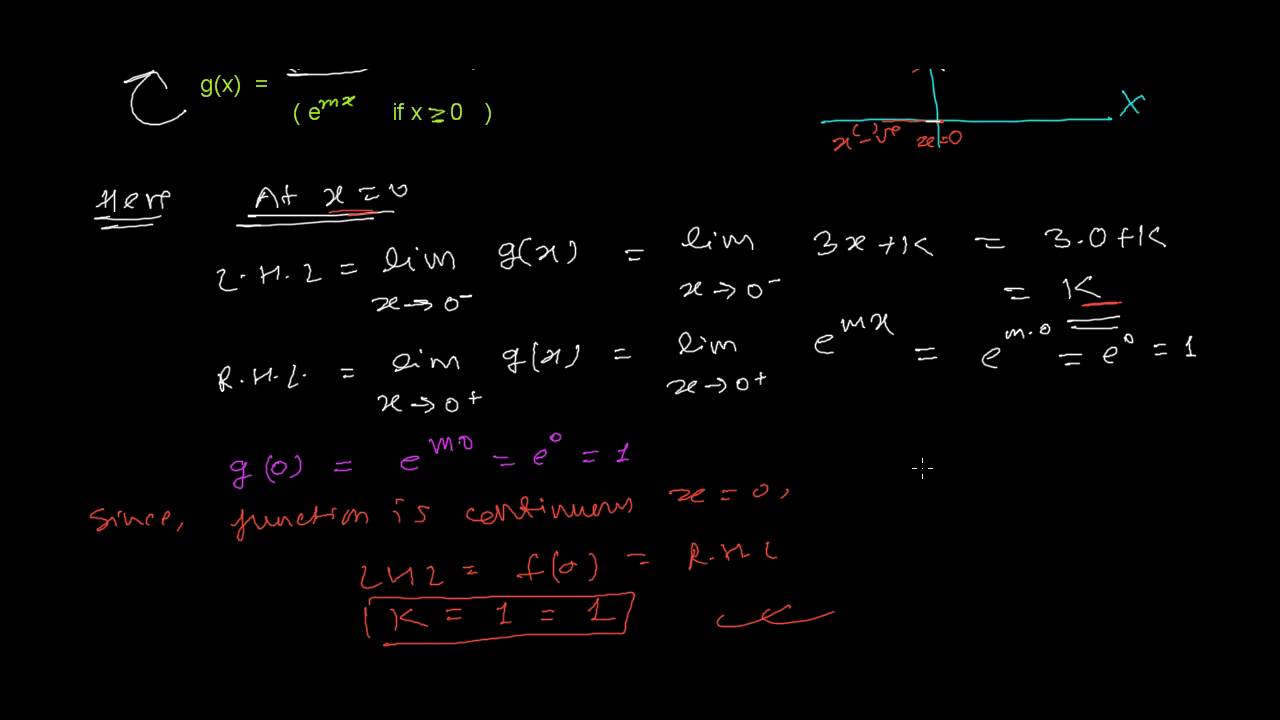 g(x) =
( e^mx if x ≥ 0 )
X
x(-)ve x=0
Here At x = 0
L.H.L = lim x→0⁻ g(x) = lim x→0⁻ 3x+K = 3.0+K
= K
R.H.L. = lim x→0+ g(x) = lim x→0+ e^mx = e^m.0 = e^0 = 1
g(0) = e^m.0 = e^0 = 1
Since, function is continuous x = 0,
LHL = f(0) = R.H.L
K = 1 = 1